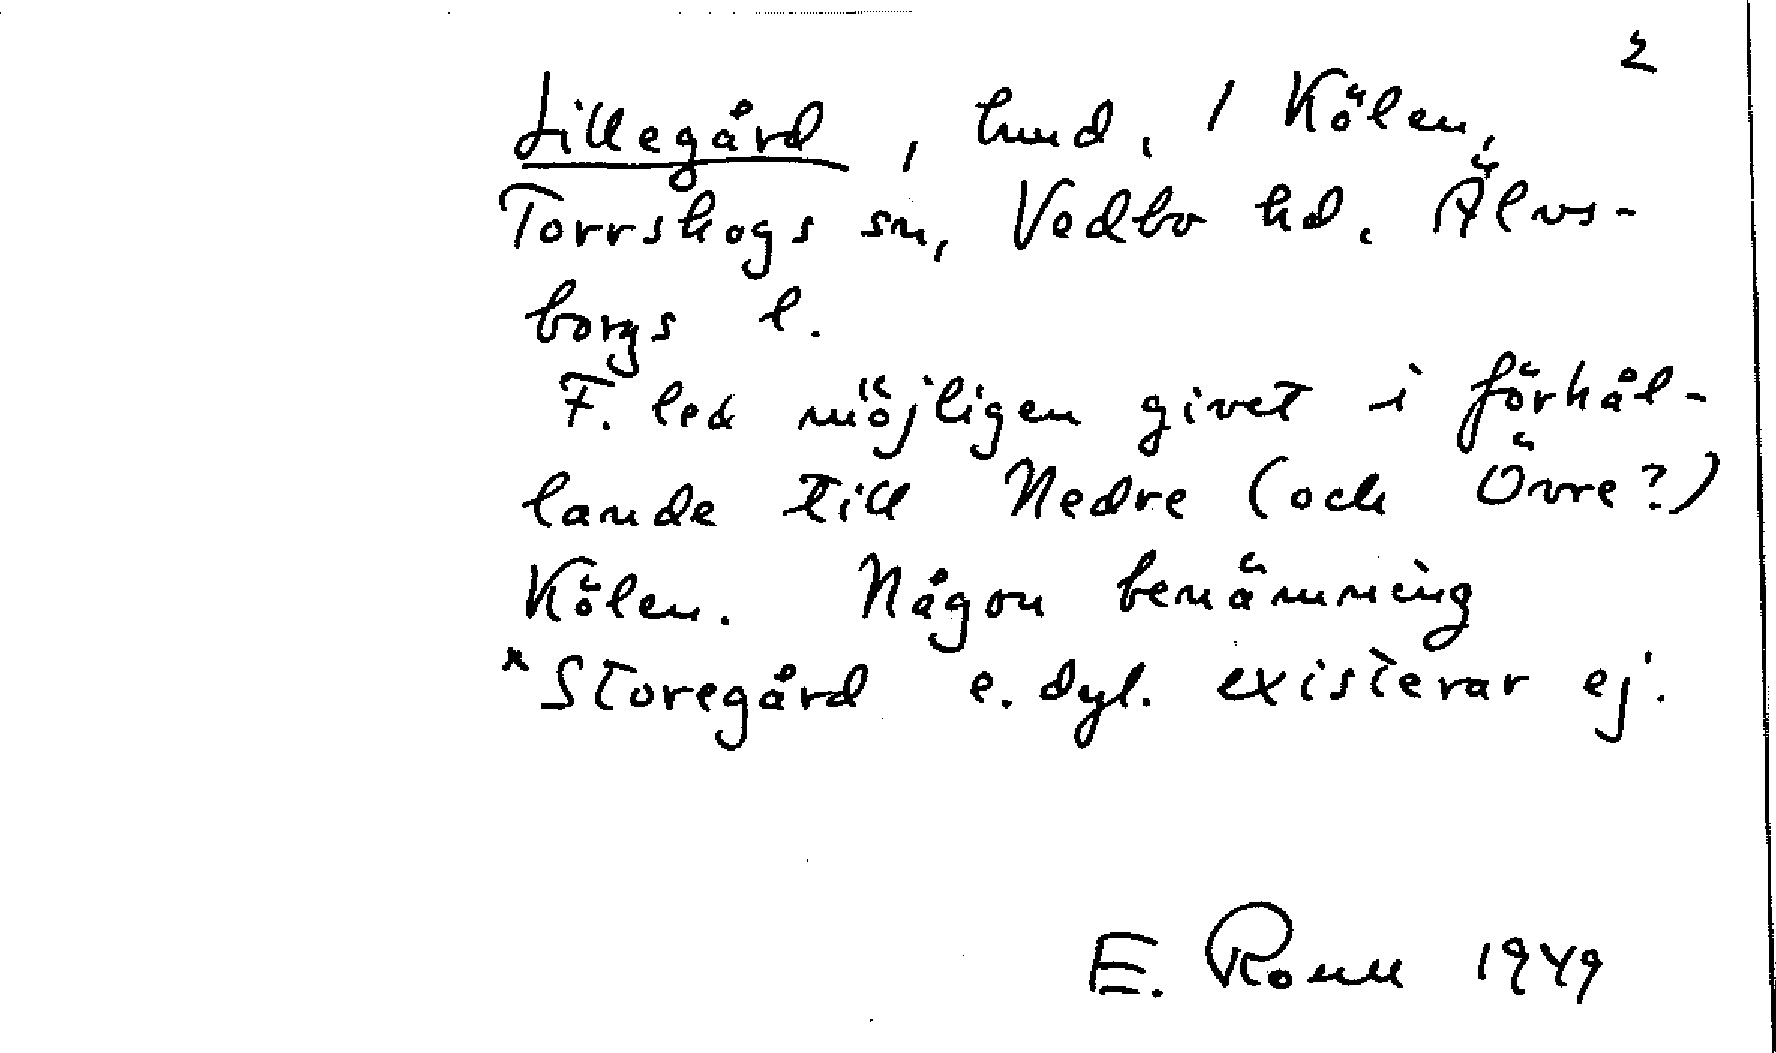 2
Lillegård, hmd. 1 Kölen,
Torrskogs sn, Vedbo hd. Älvs-
borgs l.
F. led möjligen givet i förhål-
lande till Nedre (och Övre?)
Kölen. Någon benämning
*Storegård e. dyl. existerar ej.
E. Rouu 1949